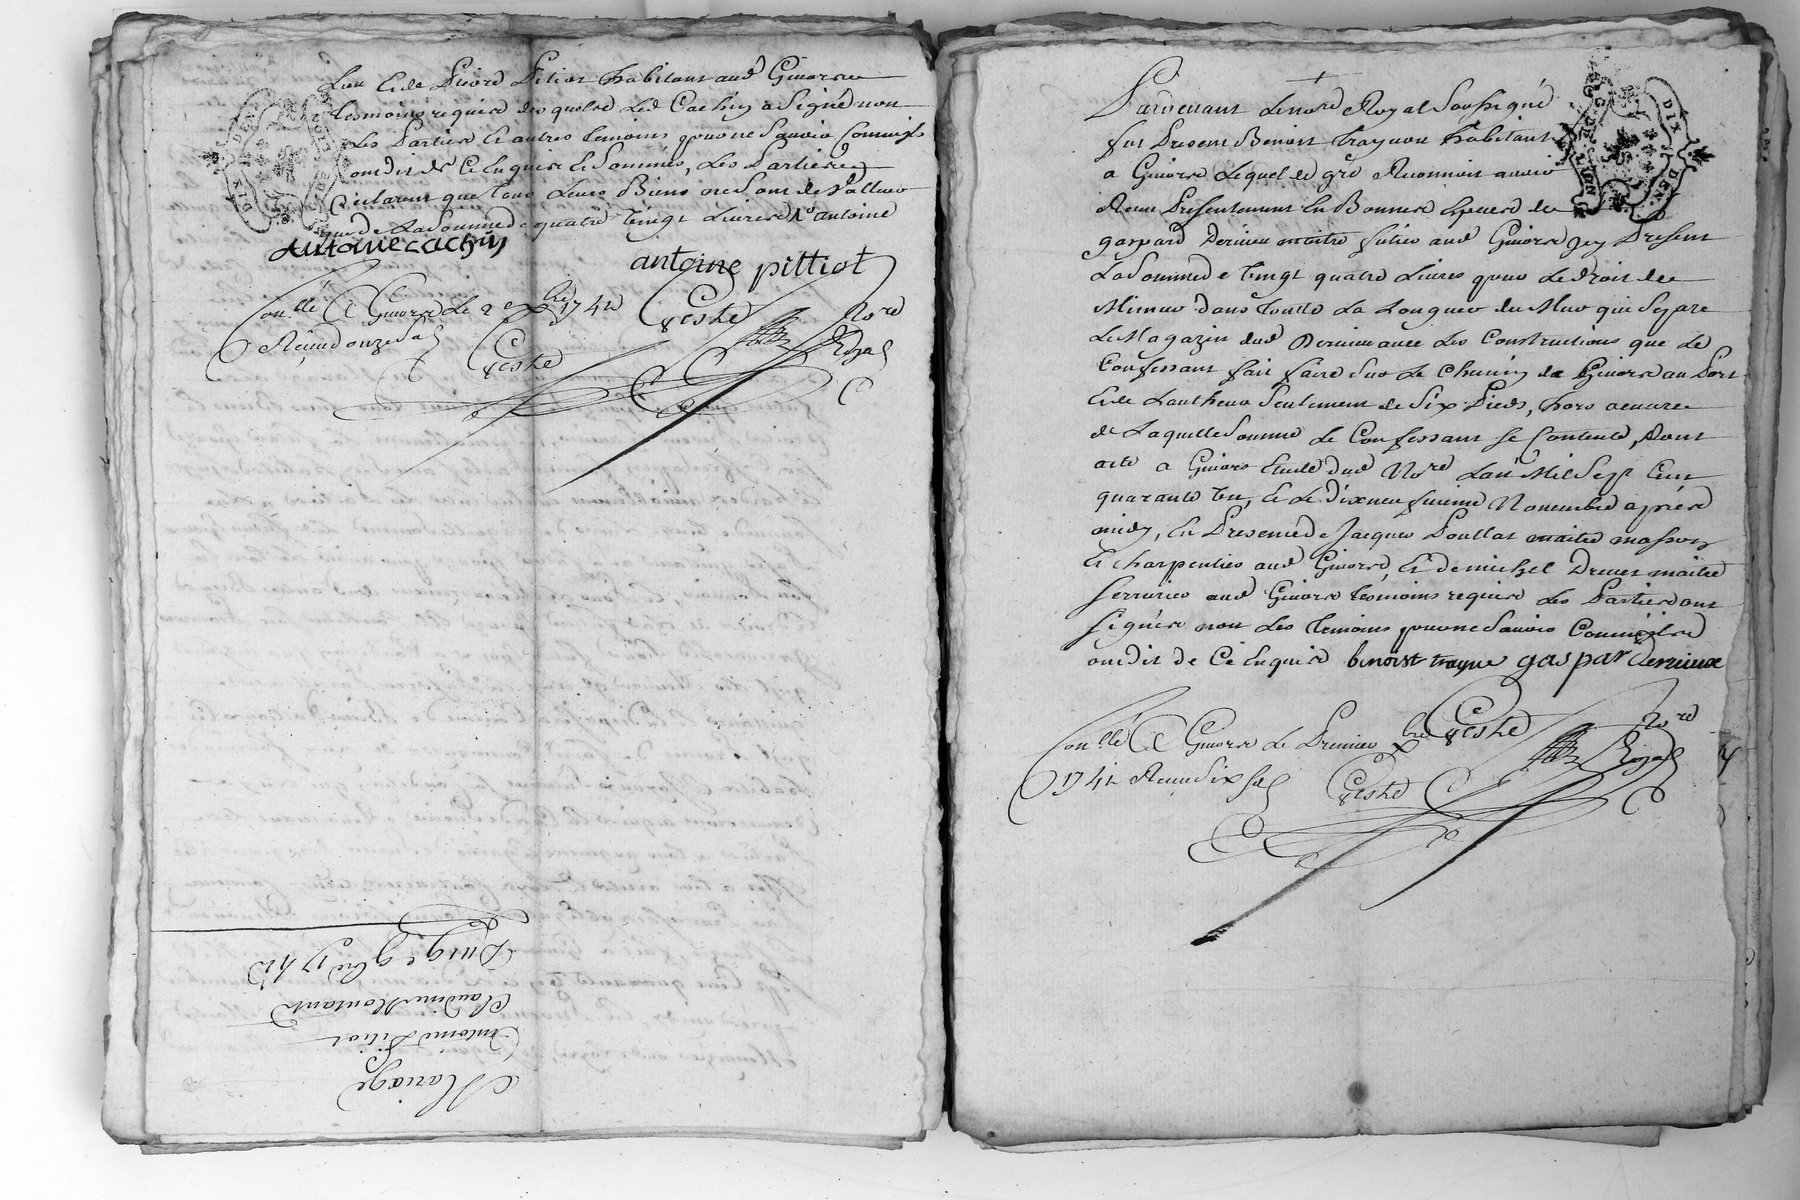 Lieu et de Pierre Pitiot habitant aud Givors
temoins requis desquels led Cachin a signé non
les Parties et autres temoins pour ne savoir comme ils
ont dit de ce enquis et sommés, les Parties
declarent que tous leurs Biens ne sont de valleur
que de la somme de quatre vingt livres antoine
antoine cachin
antoine pittiot
Conllé a Givors le 2e xbre 1741
Receu douze sols
Geste Nore Royal
Geste
Du 19e 9bre 1741
Claudine Moutant
Antoine Pitiot
Mariage
DIX DEN.
Pardevant le notre Royal soussigné
fut Present Benoist traynou habitant
a Givors lequel de gré Reconnoit avoir
Receu Presentement en Bonnes especes de
gaspard Derieu maitre futier aud Givors icy Present
la somme de vingt quatre livres pour le droit de
Mimur dans toutte la longueur du Mur qui separe
le Magazin dud Derieu avec les Constructions que le
Confessant fait faire sur le chemin de Givors au Port
et de hautheur seulement de six Pieds, hors oeuvre
de laquelle somme le Confessant se Contente, dont
acte a Givors Etude dud Nore l'an Mil sept Cent
quarante un, et le dixneufvieme Novembre après
midy, en Presence de Jacques Poullat maitre masson
et charpentier aud Givors, et de michel Drevet maitre
serrurier aud Givors temoins requis les Parties ont
signés non les temoins pour ne savoir Comme ils
ont dit de ce enquis benoist trayne gaspar derrieux
Conllé a Givors le Premier xbre
1741 Receu six sols
Geste Nore Royal
Geste